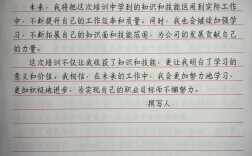 未来，我将把这次培训中学到的知识和技能运用到实际工作
中，不断提升自己的工作效率和质量。同时，我也会继续加强学
习，不断拓展自己的知识面和技能范围，为公司的发展贡献自己
的力量。
这次培训不仅让我收获了知识和技能，更让我明白了学习的
意义和价值。我相信，在未来的工作中，我会更加努力地学习，
更加积极地进步，为实现自己的职业目标而不懈努力。
撰写人